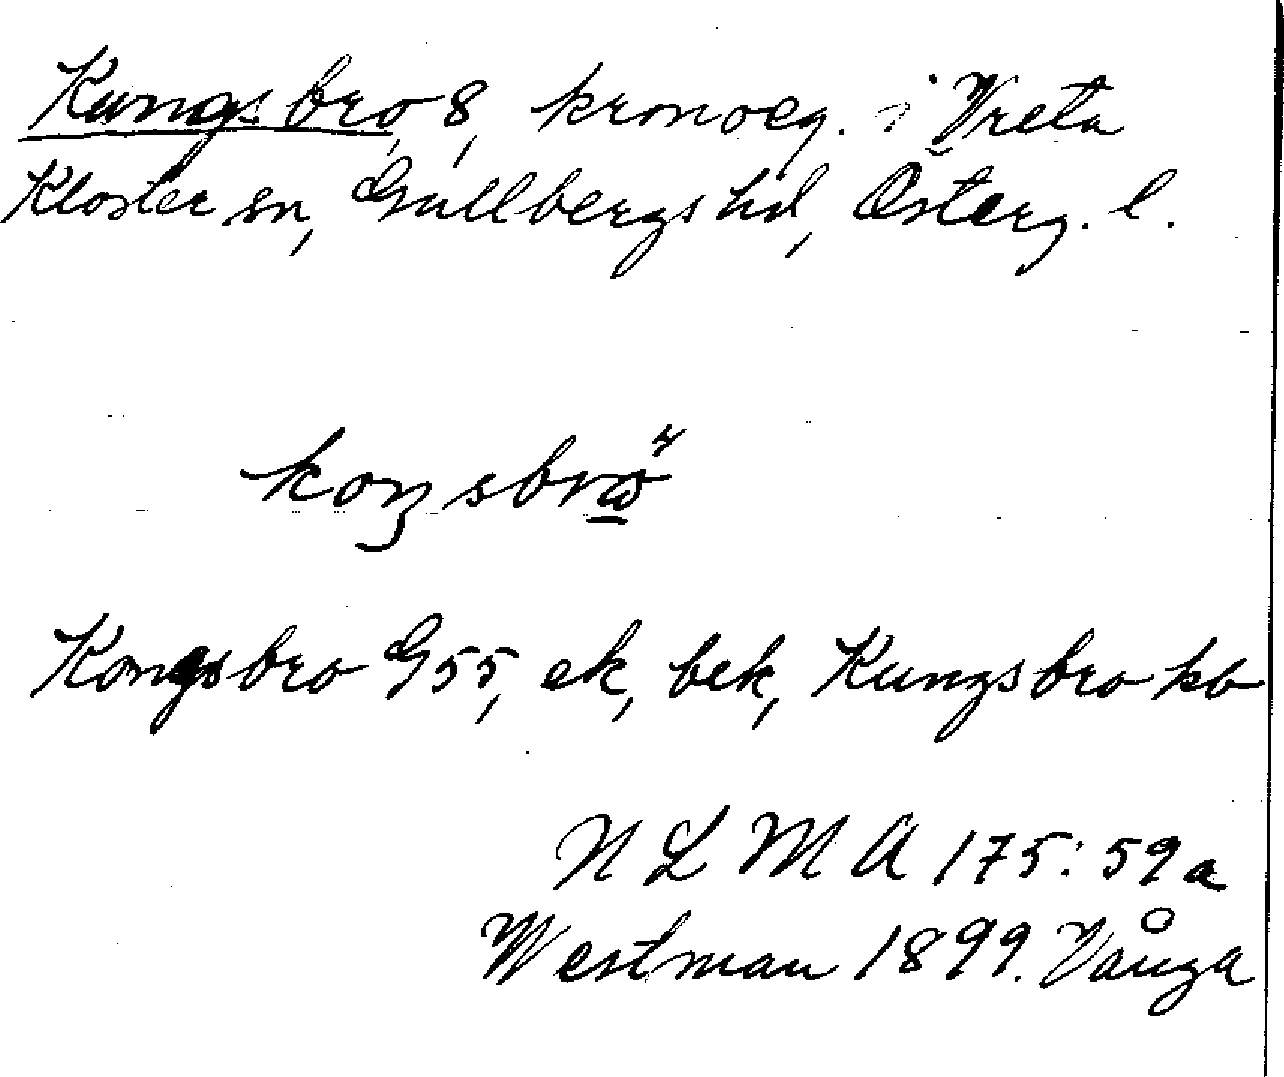 Kungsbro 8, kronoeg. i Vreta
Kloster sn, Gullbergs hd, Österg. l.
Kongsbro G55, ek, bek, Kungsbro kb
NLMA 175:59a
Westman 1899. Vånga